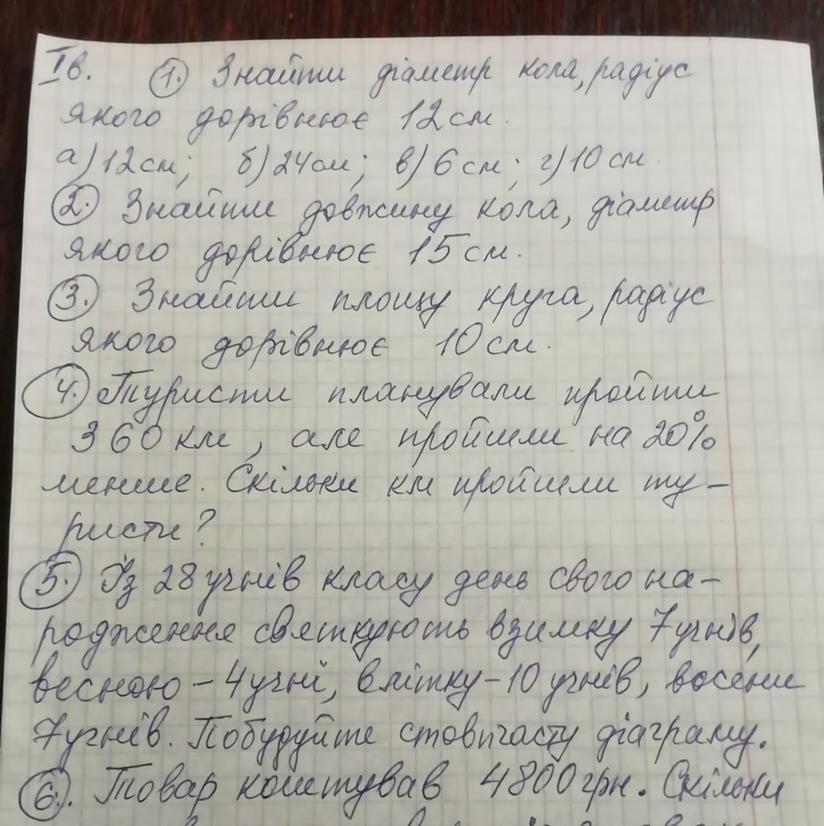 Ів. 1. Знайти діаметр кола, радіус
якого дорівнює 12 см.
а) 12 см; б) 24 см; в) 6 см; г) 10 см.
2. Знайти довжину кола, діаметр
якого дорівнює 15 см.
3. Знайти площу круга, радіус
якого дорівнює 10 см.
4. Туристи планували пройти
360 км, але пройшли на 20%
менше. Скільки км пройшли ту-
ристи?
5. Із 28 учнів класу день свого на-
родження святкують взимку 7 учнів,
весною - 4 учні, влітку - 10 учнів, восени
7 учнів. Побудуйте стовпчасту діаграму.
6. Товар коштував 4800 грн. Скільки